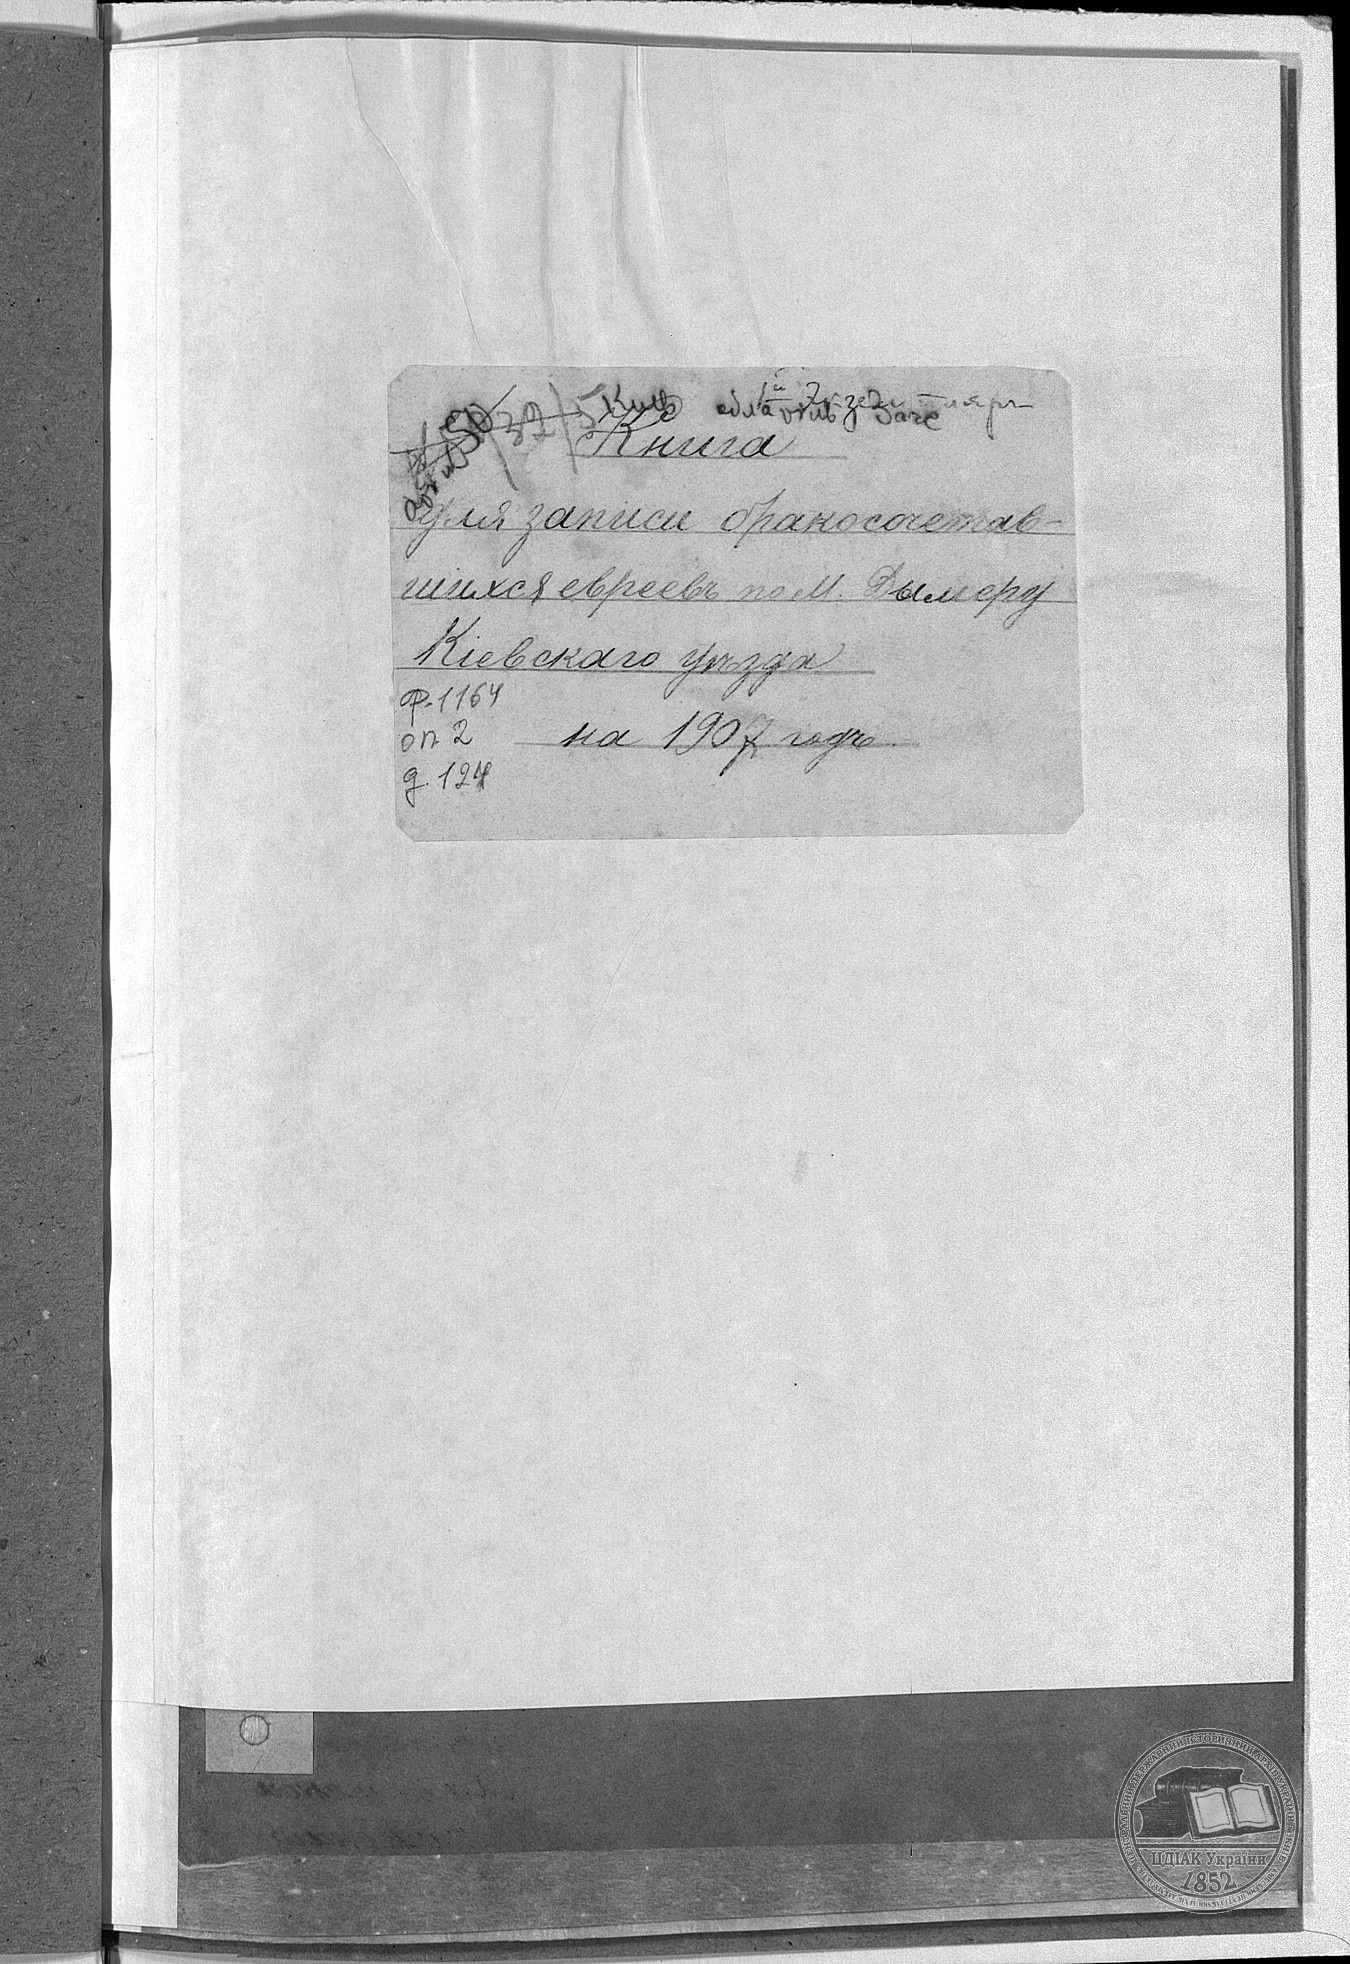 Книга
для записи бракосочетав-
шихся евреевъ по м. Дымеру
Кіевскаго уѣзда
ф. 1164
оп 2
на 1907 годъ.
д. 124
ЦДІАК України
1852